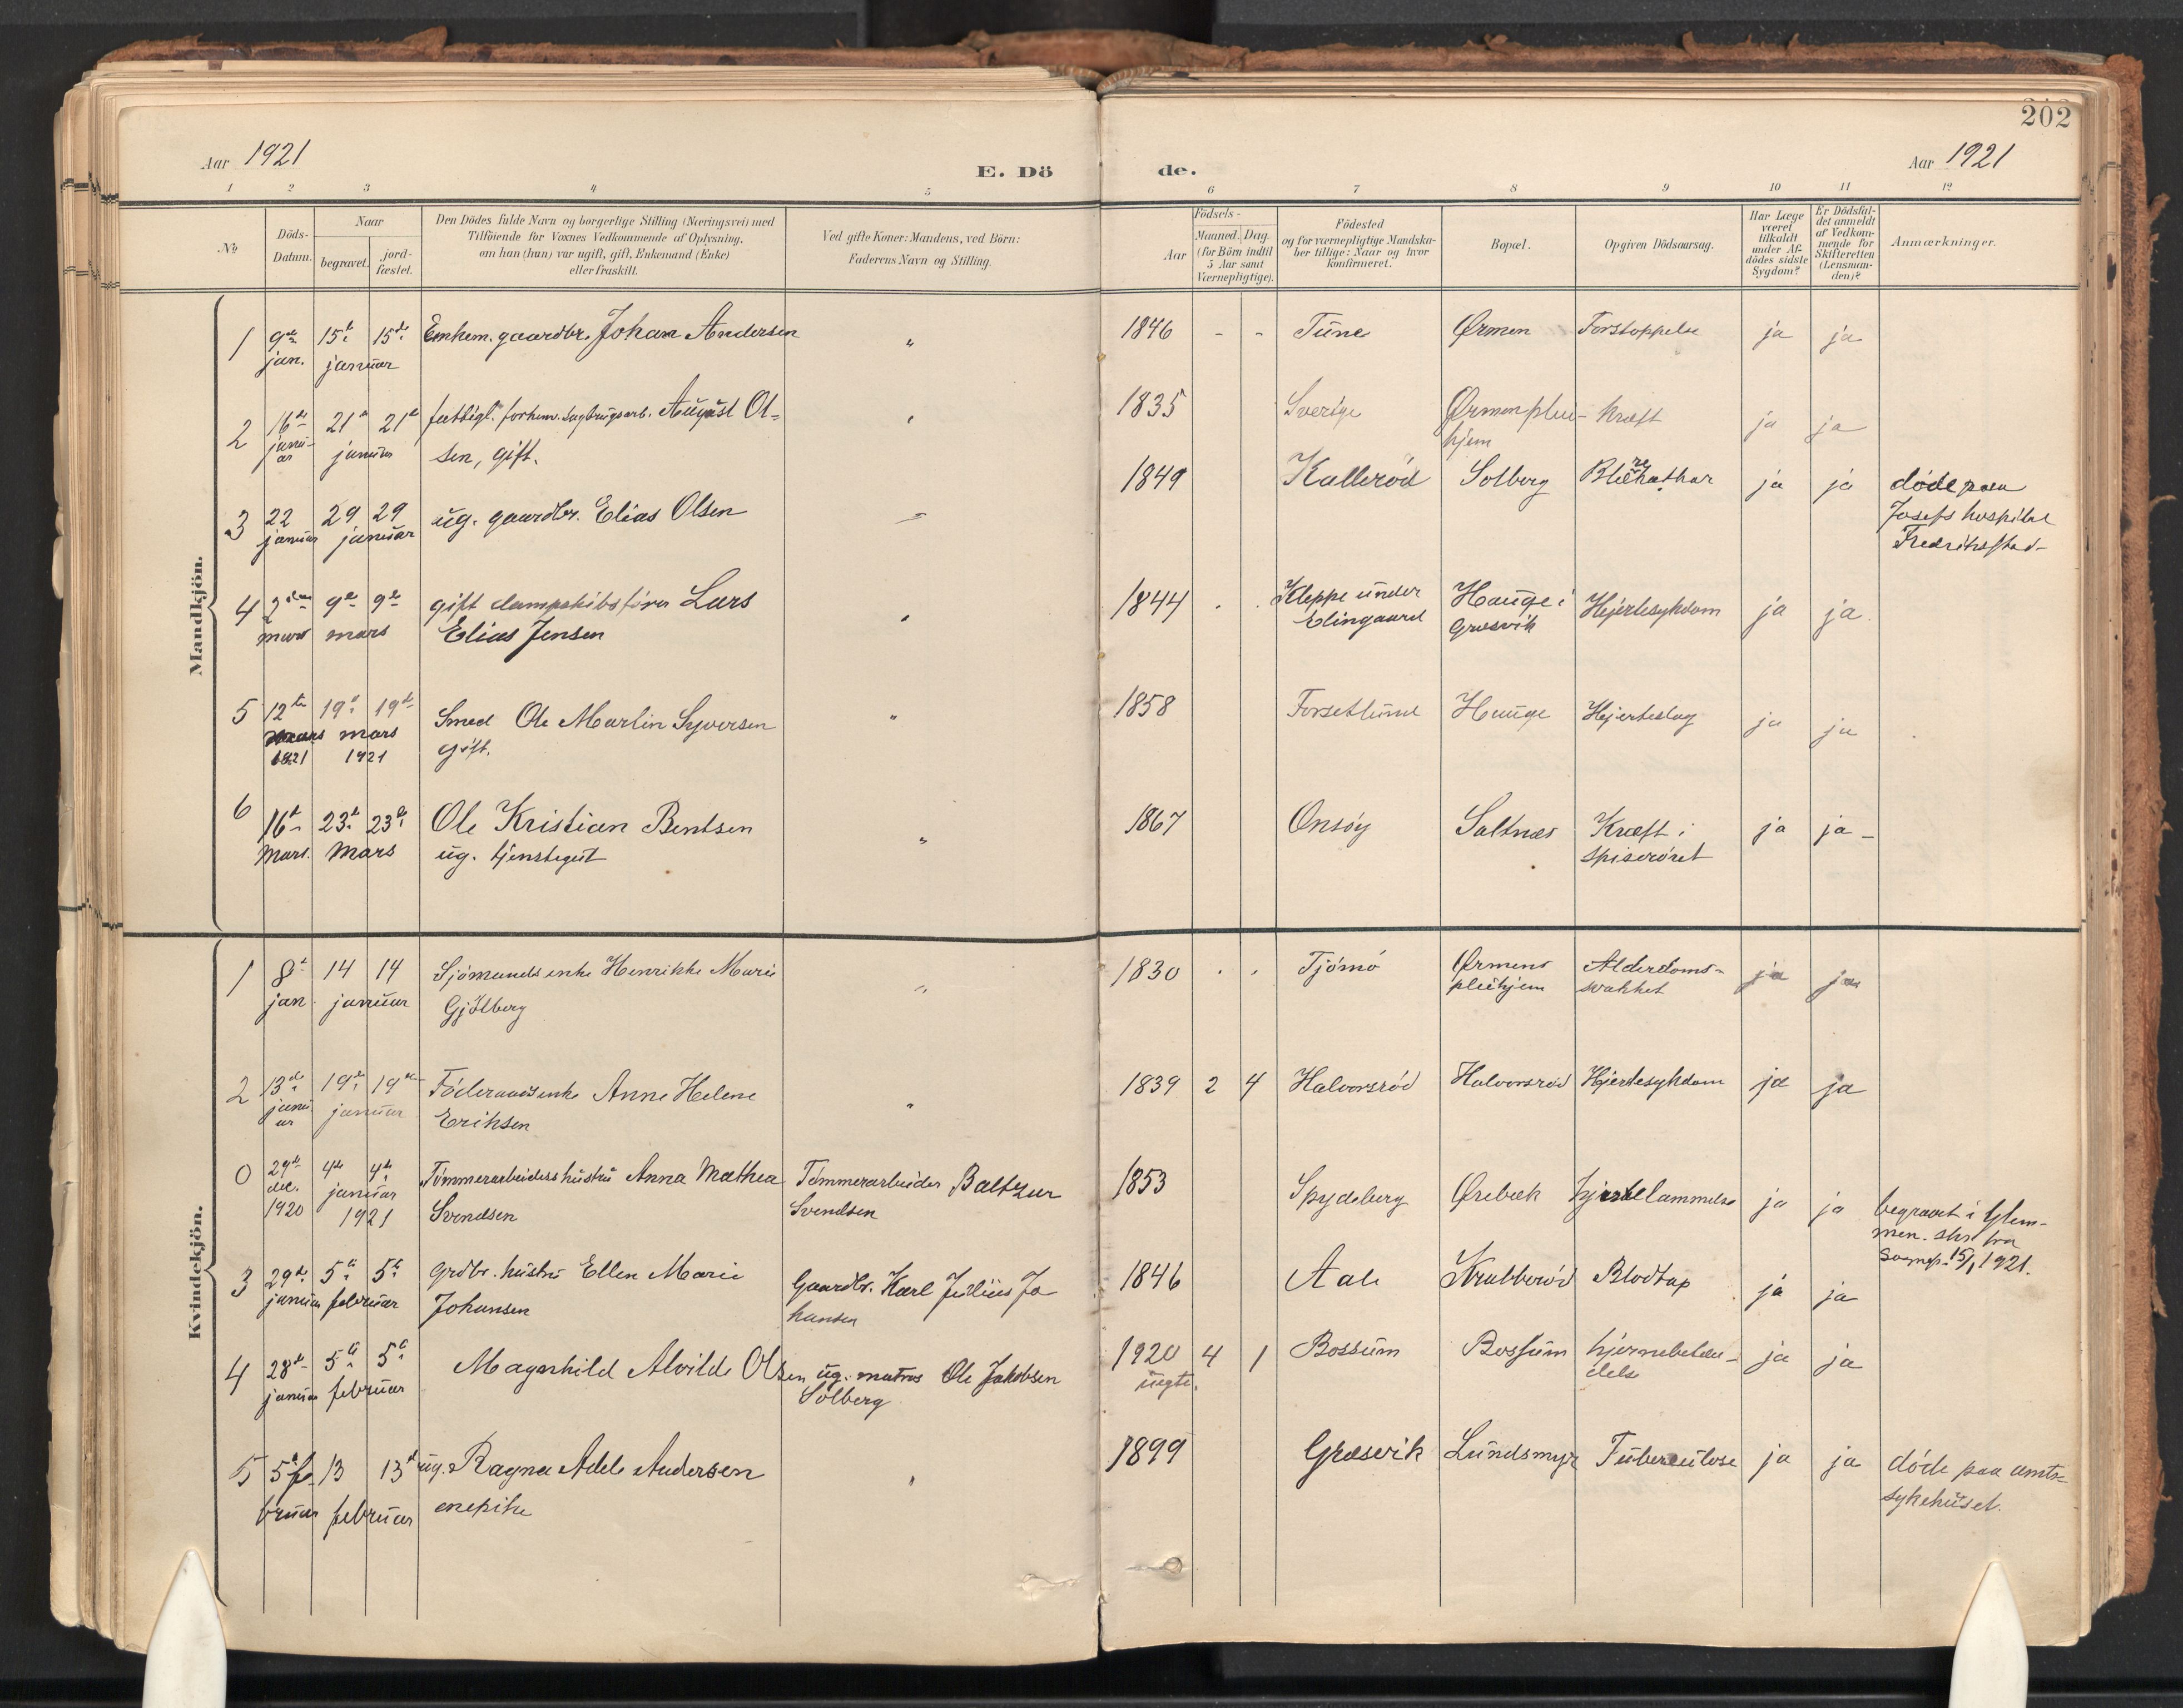 202
Aar 1921
E. Dö
de.
Aar 1921
1 2 3 4 5 6 7 8 9 10 11 12
No
Döds-Datum.
Naar
begravet.
jord-fæstet.
Den Dödes fulde Navn og borgerlige Stilling (Næringsvei) med
Tilföiende for Voxnes Vedkommende af Oplysning,
om han (hun) var ugift, gift, Enkemand (Enke)
eller fraskilt.
Ved gifte Koner: Mandens, ved Börn:
Faderens Navn og Stilling.
Födsels-
Aar
Maaned. Dag.
(for Börn indtil
5 Aar samt
Værnepligtige).
Födested
og for værnepligtige Mandska-
ber tillige: Naar og hvor
konfirmeret.
Bopæl.
Opgiven Dödsaarsag.
Har Læge
været
tilkaldt
under Af-
dödes sidste
Sygdom?
Er Dödsfal-
det anmeldt
af Vedkom-
mende for
Skifteretten
(Lensman-
den)?
Anmærkninger.
Mandkjön.
1 9de 15de 15de Enkem. gaardbr. Johan Andersen " 1846 - - Tune Ørmen Forstoppelse ja ja
jan. januar
2 16de 21de 21de fattigl. forhen. sagbrugsarb. August Ol- " 1835 Sverige Ørmen plei- Kræft ja ja
janu-
ar januar sen, gift. hjem
3 22 29 29 ug. gaardbr. Elias Olsen " 1849 Kallerød Solberg Blærekathar ja ja døde paa
januar januar Josefs hospital
Fredrikstad-
4 2den 9de 9de gift dampskibsfører Lars " 1844 . . Kleppe under Hauge i Hjertesykdom ja ja
mars mars Elias Jensen Elingaard Græsvik
5 12te 19de 19de Smed Ole Martin Syversen " 1858 Forsetlund Hauge Hjerteslag ja ja
mars mars gift.
1921 1921
6 16de 23de 23de Ole Kristian Bentsen " 1867 Onsøy Saltnæs Kræft i ja ja -
Mars. Mars ug. tjenstegut spiserøret
Kvindekjön.
1 8de 14 14 Sjömands enke Henrikke Marie " 1830 . . Tjömö Ørmens Alderdoms- ja ja
jan. januar Gjölberg pleiehjem svakhet
2 13de 19de 19de Föderaadsenke Anne Helene " 1839 2 4 Halvorsrød Halvorsrød Hjertesykdom ja ja
janu-
ar januar Eriksen
0 29de 4de 4de Tömmerarbeiders hustru Anna Mathea Tömmerarbeider Baltzar 1853 Spydeberg Ørebæk hjertelammelse ja ja begravet i Glem-
dec. januar men. skr. fra
1920 1921 Svendsen Svendsen sognep. 15/1 1921.
3 29de 5te 5te Grdbr. hustru Ellen Marie Gaardbr. Karl Julius Jo 1846 Aale Krabberød Blodtap ja ja
januar februar Johansen hansen
4 28de 5te 5te Magnhild Alvilde Olsen ug. matros Ole Jakobsen 1920 4 1 Bossum Bossum hjernebetæn- ja ja
januar februar Solberg uegte. delse
5 5te fe- 13 13de ug. Ragna Adele Andersen " 1899 Græsvik Lundsmyr Tuberculose ja ja døde paa amts-
bruar februar enepike sykehuset.